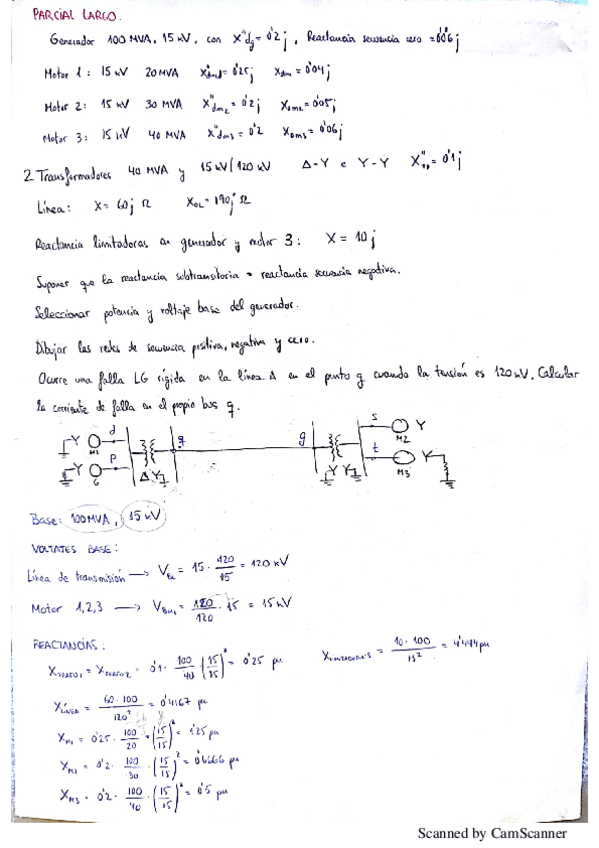 PARCIAL LARGO.
Generador 100 MVA, 15 kV, con X"dg = 0'2j, Reactancia secuencia cero = 0'06j
Motor 1: 15 kV 20 MVA X"dm1 = 0'25j X0m = 0'04j
Motor 2: 15 kV 30 MVA X"dm2 = 0'2j X0m2 = 0'05j
Motor 3: 15 kV 40 MVA X"dm3 = 0'2 X0m3 = 0'06j
2 Transformadores 40 MVA y 15 kV/120 kV Δ-Y e Y-Y X" = 0'1j
Línea: X = 60j Ω X0L = 190j Ω
Reactancia limitadoras en generador y motor 3: X = 10j
Suponer que la reactancia subtransitoria = reactancia secuencia negativa.
Seleccionar potencia y voltaje base del generador.
Dibujar las redes de secuencia positiva, negativa y cero.
Ocurre una falla LG rígida en la línea A en el punto q cuando la tensión es 120 kV. Calcular
la corriente de falla en el propio bus q.
Y M1 d
Y G p
Δ Y
q
g
Y Y
s M2 Y
t M3 Y
Base: 100 MVA, 15 kV
VOLTAJES BASE:
Línea de transmisión → VBL = 15 · 120/15 = 120 kV
Motor 1,2,3 → VBM1 = 120/120 · 15 = 15 kV
REACTANCIAS:
XTRAFO1 = XTRAFO2 = 0'1 · 100/40 (15/15)² = 0'25 pu
XLIMITADORES = 10·100/15² = 4'444 pu
XLÍNEA = 60·100/120² = 0'4167 pu
XM1 = 0'25 · 100/20 · (15/15)² = 1'25 pu
XM2 = 0'2 · 100/30 · (15/15)² = 0'6666 pu
XM3 = 0'2 · 100/40 · (15/15)² = 0'5 pu
Scanned by CamScanner